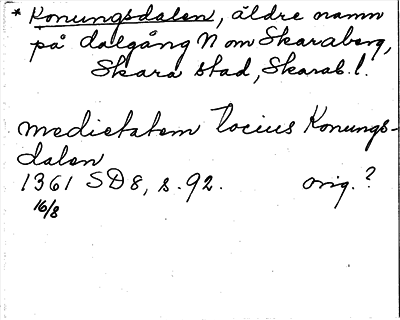 * Konungsdalen, äldre namn
på dalgång N om Skaraberg,
Skara stad, Skarab. l.
medietatem tocius Konungs-
dalen
1361 SD 8, s. 92. orig. ?
16/8